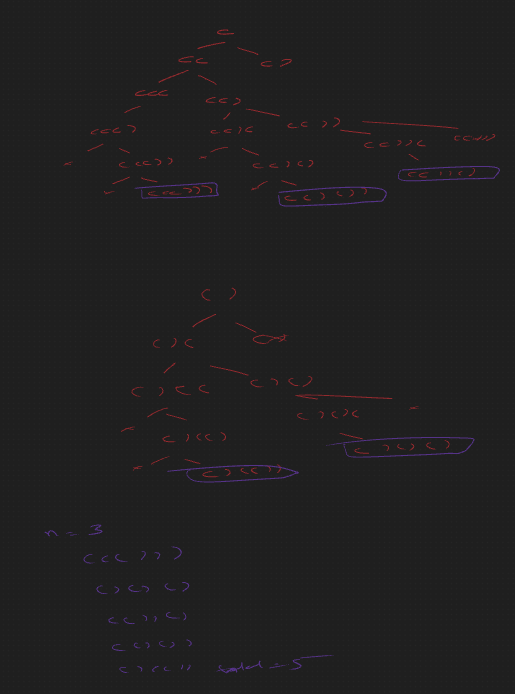 (
((
()
(((
(()
((()
(()(
(())
((())
(()()
(())(
((()))
(()())
(())()
()
()(
()((
()()
()()(
()(()
()(())
()()()
n = 3
((()))
()()()
(())()
(()())
()(()) total = 5